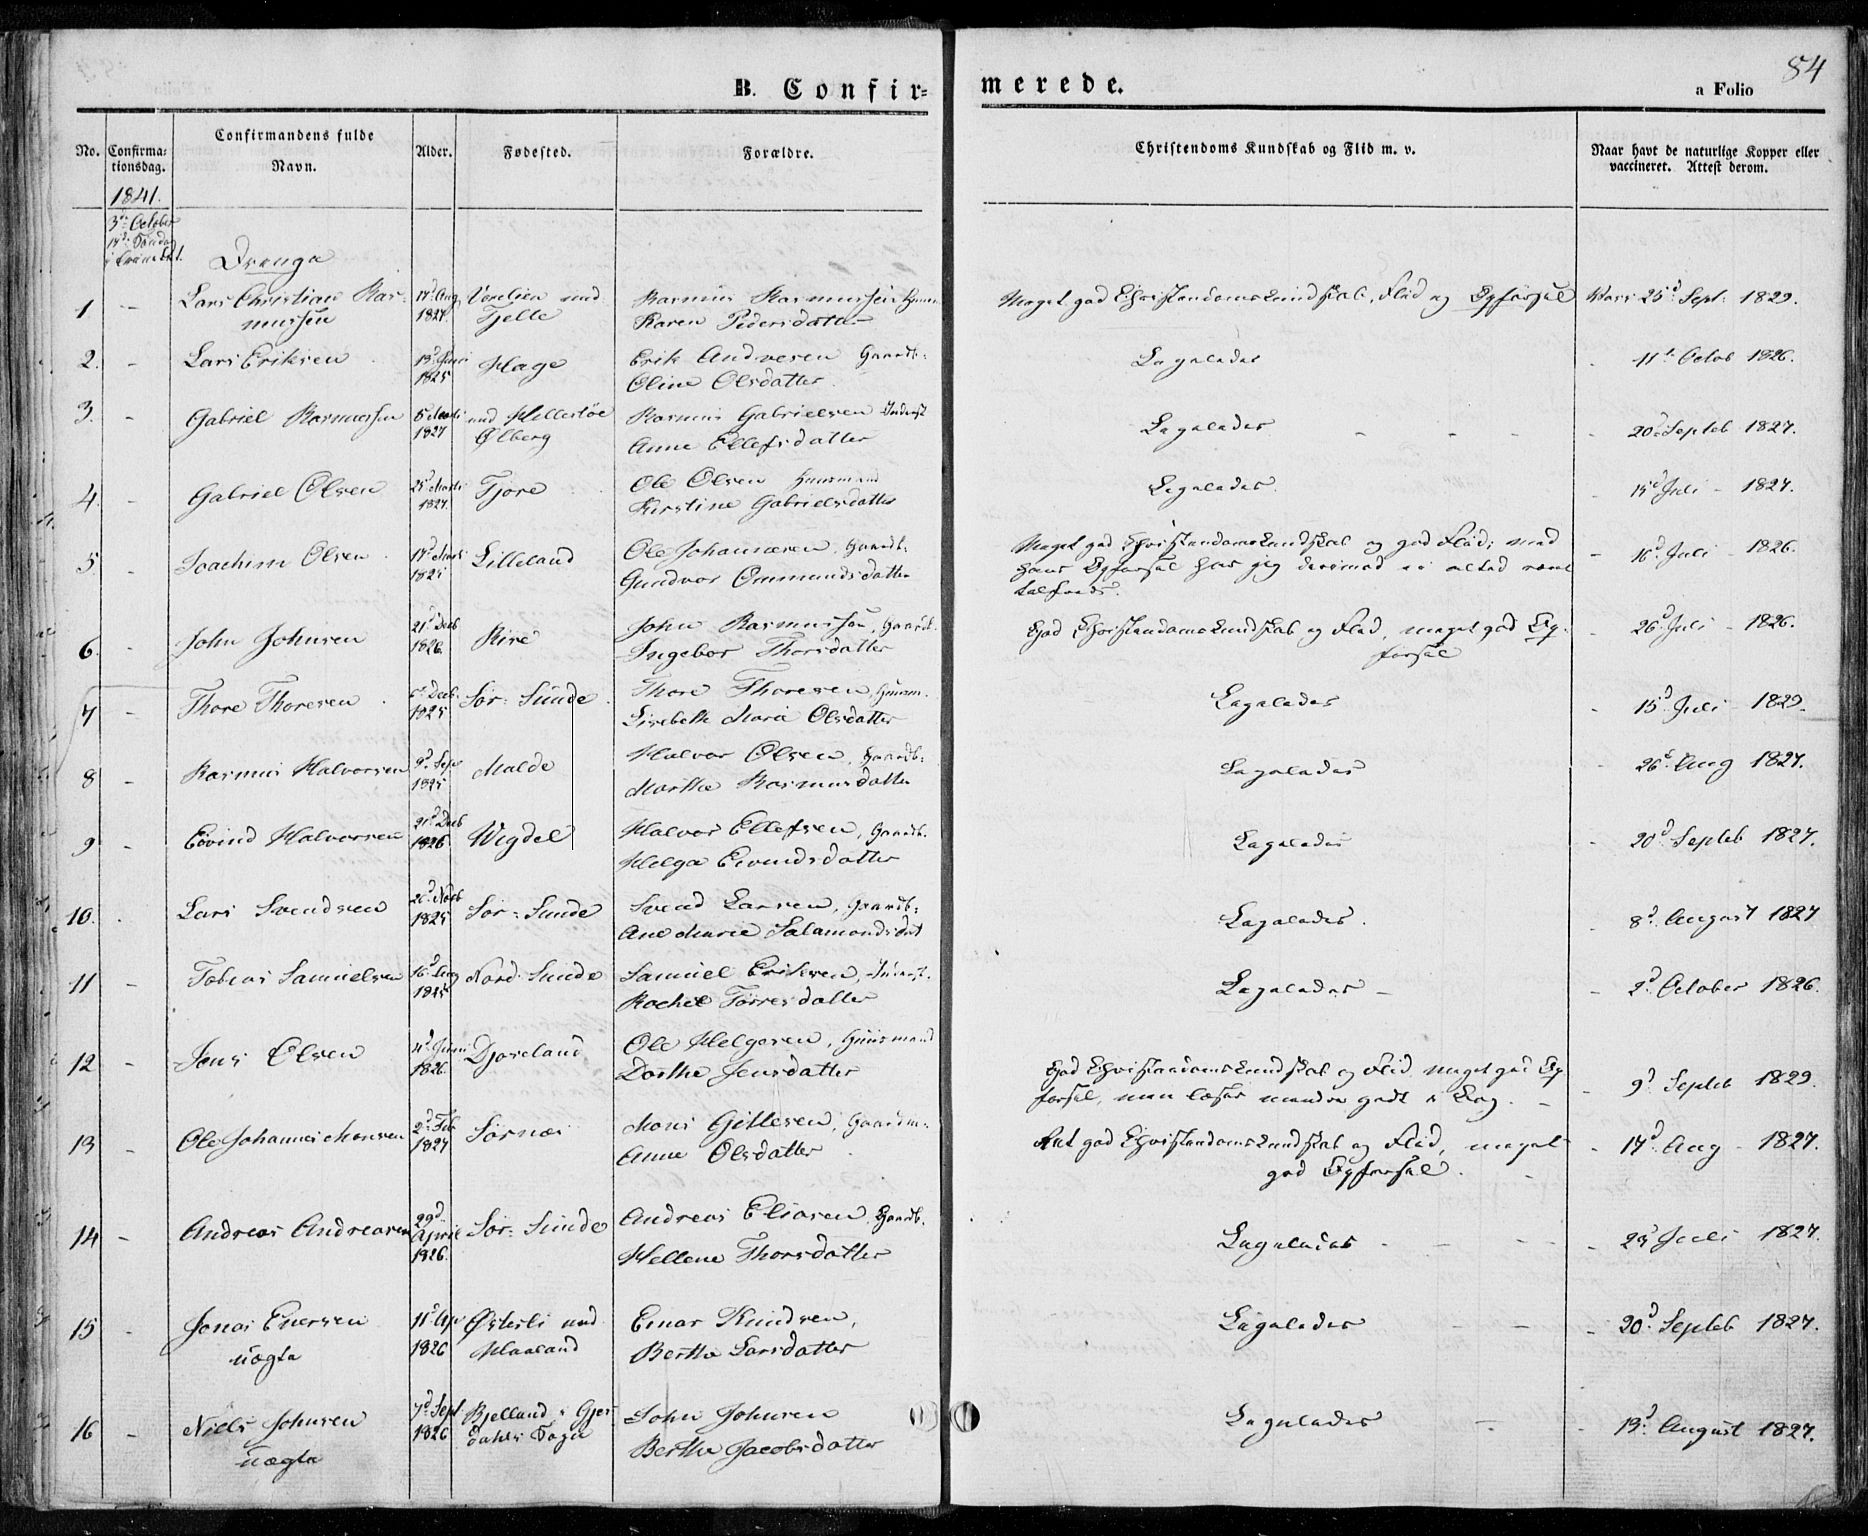 84
B. Confirmerede.
a Folio
No.
Confirmationsdag.
Confirmandens fulde Navn.
Alder.
Fødested.
Forældre.
Christendoms Kundskab og Flid m. v.
Naar havt de naturlige Kopper eller vaccineret. Attest derom.
1841.
3d October
Drenge
1 Lars Christian Rasmussen 1827 Tjelte Rasmus Rasmussen Karen Pedersdatter Meget god Christendomskundskab, Flid og Opførsel 25d Sept. 1829.
2. Lars Eriksen 1825 Hage Erik Andresen Gaardb: Oline Olsdatter Ligeledes 11te Octob 1826.
3. Gabriel Rasmussen 1827 Hellestøe Ølberg Rasmus Gabrielsen Inderst Anne Ellefsdatter Ligeledes 20d Septeb 1827.
4. Gabriel Olsen 25d Marti 1827. Tjore Ole Olsen Huusmand Kirstine Gabrielsdatter Ligeledes 15d Juli 1827.
5 Joachim Olsen 1825 Lilleland Ole Johannesen, Gaardb: Gundvor Ommundsdatter Meget god Christendomskundskab og god Flid; med hans Opførsel har jeg derimod ei altid været tilfreds. 16d Juli 1826.
6. John Johnsen 21d Deeb 1826. Rire John Rasmussen, Gaardb. Ingebor Thorsdatter God Christendomskundskab og Flid, meget god Opførsel 26d Juli 1826.
7 Thore Thoresen 6d Deeb. 1825 Sør-Sunde Thore Thoresen, Huusm. Lisebeth Maria Olsdatter Ligeledes 15d Juli 1829.
8 Rasmus Halvorsen 9d Sep 1825 Malde Halvor Olsen, Gaardb: Martha Rasmusdatter Ligeledes 26d Aug 1827.
9 Eivind Halvorsen 21d Deeb 1826 Wigdel Halvor Ellefsen, Gaardb. Helga Eivindsdatter Ligeledes 20d Septeb 1827.
10. Lars Svendsen 26d Novb 1825 Sør-Sunde Svend Larsen, Gaardb: Ane Marie Salamonsdat Ligeledes. 8d August 1827
11 Tobias Samuelsen 16d Aug 1825 Nord-Sunde Samuel Eriksen, Inderst. Rachel Tørresdatter Ligeledes 2d October 1826.
12 Jens Olsen 4d Juni 1826. Djoseland Ole Helgesen, Huusmand Dorthe Jensdatter God Christendomskundskab og Flid, meget god Opførsel, men læser mindre godt i Bog. 9d Septeb 1829.
13 Ole Johannes Monsen 2d Feb 1827 Sørnæs Mons Gitlesen, Gaardm: Anne Olsdatter god Christendomskundskab og Flid, meget god Opførsel. 17d Aug 1827.
14 Andreas Andreasen 29d April 1826. Sør-Sunde Andreas Eliasen, Gaardb. Hellene Thorsdatter Ligeledes Juli 1827.
15 Jonas Enersen uægte 11d Ap 1826 Østerli und Haaland Einar Knudsen, Bertha Larsdatter Ligeledes 20d Septeb 1827.
16 Niels Johnsen uægte 7d Sept 1826 Bjelland i Gjesdahls Sogn John Johnsen Bertha Jacobsdatter Ligeledes 13d August 1827.